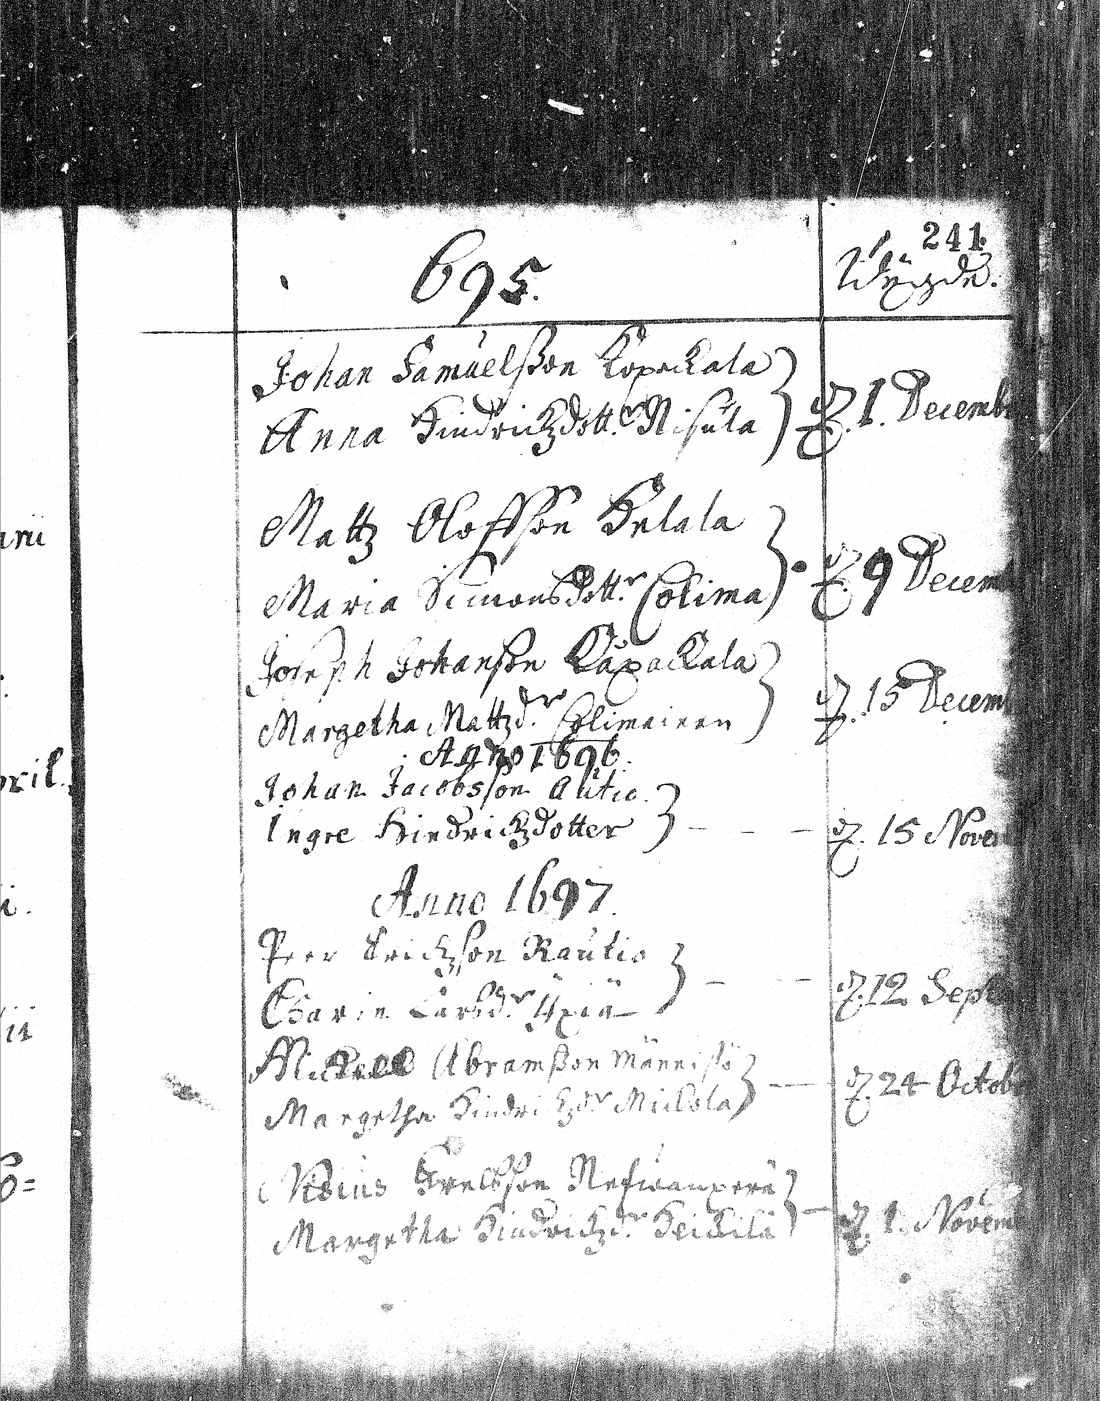 241
695. Wÿgde.
Johan Samuelsson Kopackala
Anna Hindrichzdott:r Nisula d. 1. Decemb
Mattz Olofsson Kelala
Maria Simonsdott:r Colima d. 9 Decem
arii
Joseph Johanson Käpackala
Margetha Mattzd:r Colimainen d. 15 Decem
Anno 1696.
Johan Jacobsson Autio
ril.
Ingre Hindrichzdotter d. 15 Nove
Anno 1697.
i.
Peer Erichzson Rautio
Carin Larsd:r d. 12 Sept
ii
Mickell Abramsson Männistö
Margetha Hindrichzd:r Mickola d. 24 Octob
Axelsson
Margetha Hindrichzd:r Heickilä d. 1. Novem